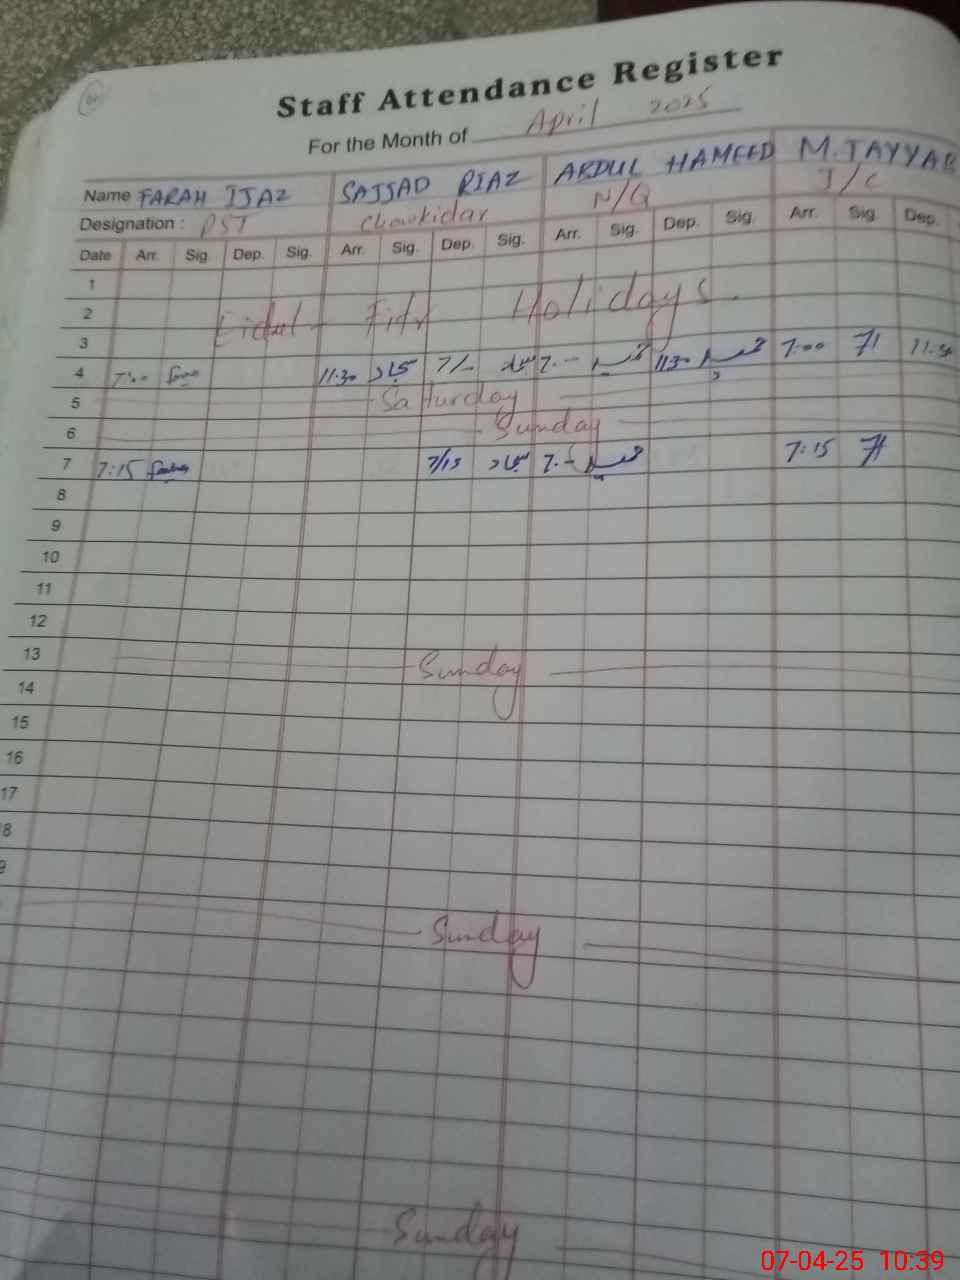 Staff Attendance Register
For the Month of April 2025
Name FARAH IJAZ SAJJAD RIAZ ABDUL HAMEED M. TAYYAB
Designation : PST Chowkidar N/Q J/C
Date Arr. Sig. Dep. Sig. Arr. Sig. Dep. Sig. Arr. Sig. Dep. Sig. Arr. Sig. Dep.
1
2 Eidul-Fitr Holidays.
3
4 7:00 11:30 سجاد 7/- سجاد 7.- 11:30 7:00 11:30
5 Satturday
6 Sunday
7 7:15 7/15 سجاد 7.- 7:15
8
9
10
11
12
13 Sunday
14
15
16
17
8
9
Sunday
Sunday
07-04-25 10:39